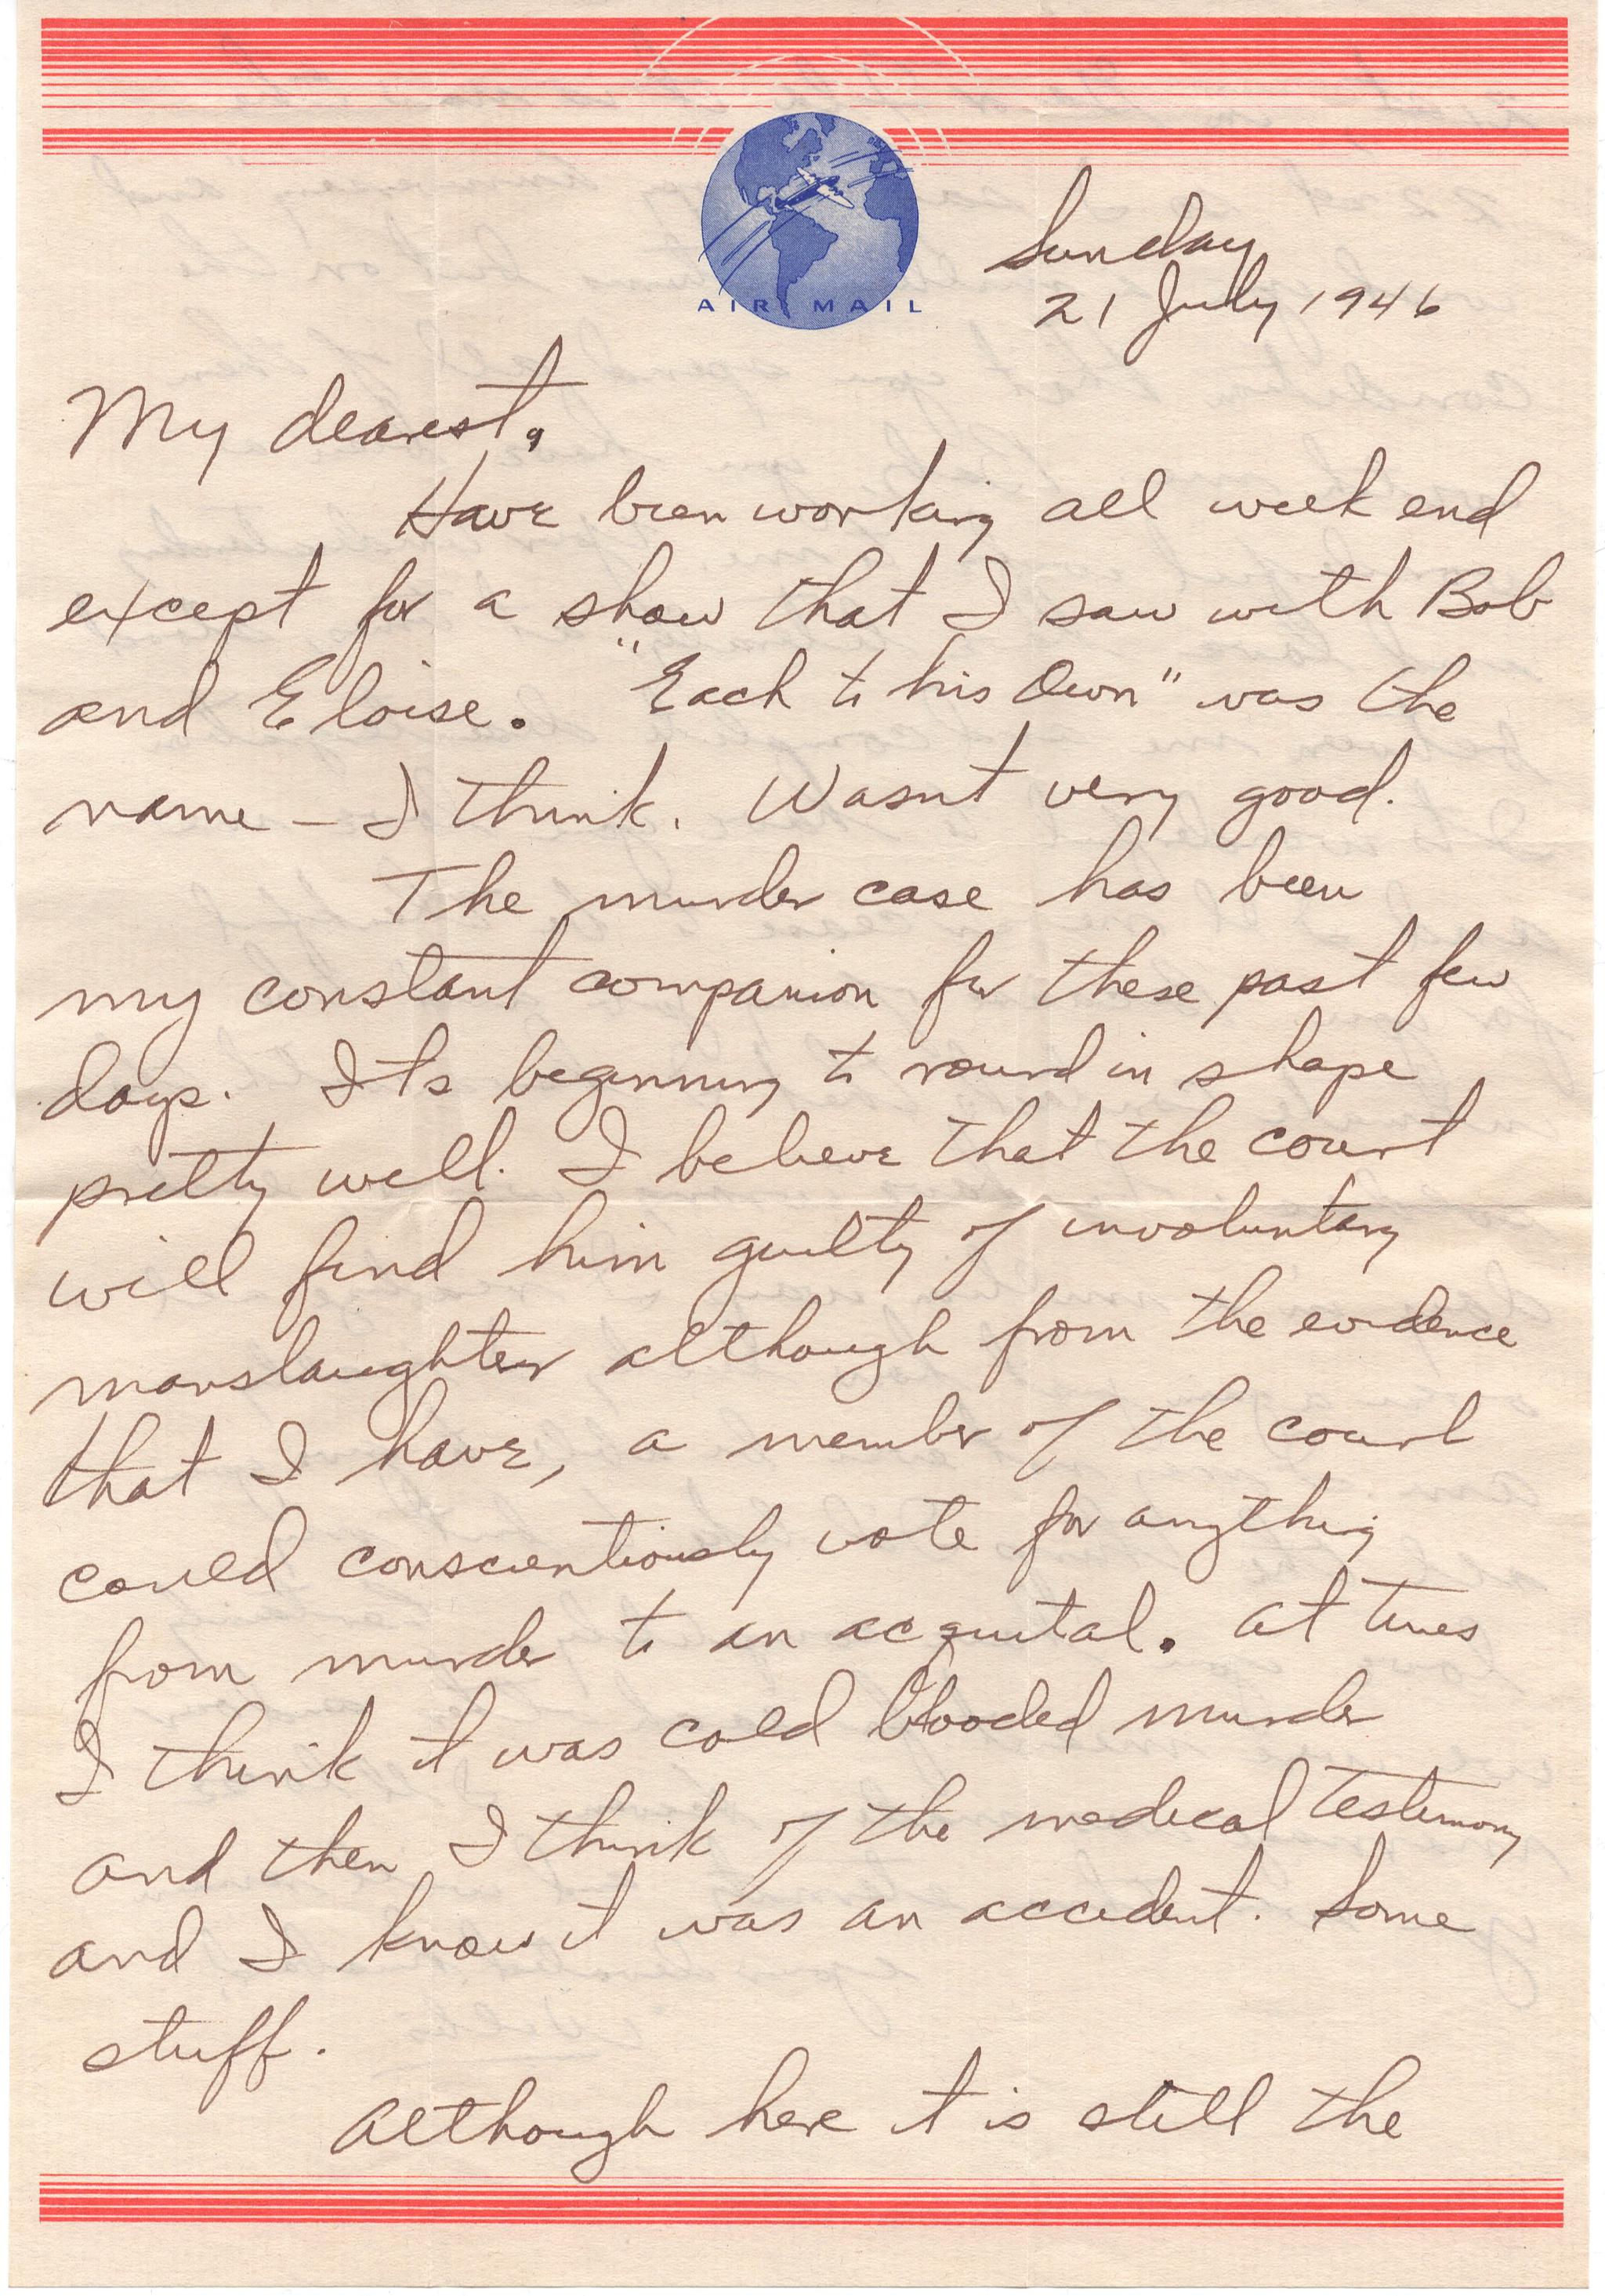 AIR MAIL
Sunday
21 July 1946
My dearest,
Have been working all week end
except for a show that I saw with Bob
and Eloise. "Each to his Own" was the
name - I think. Wasnt very good.
The murder case has been
my constant companion for these past few
days. Its beginning to round in shape
pretty well. I believe that the court
will find him guilty of involuntary
manslaughter although from the evidence
that I have, a member of the court
could conscientiously vote for anything
from murder to an acquital. At times
I think it was cold blooded murder
and then I think of the medical testimony
and I know it was an accident. Some
stuff.
Although here it is still the